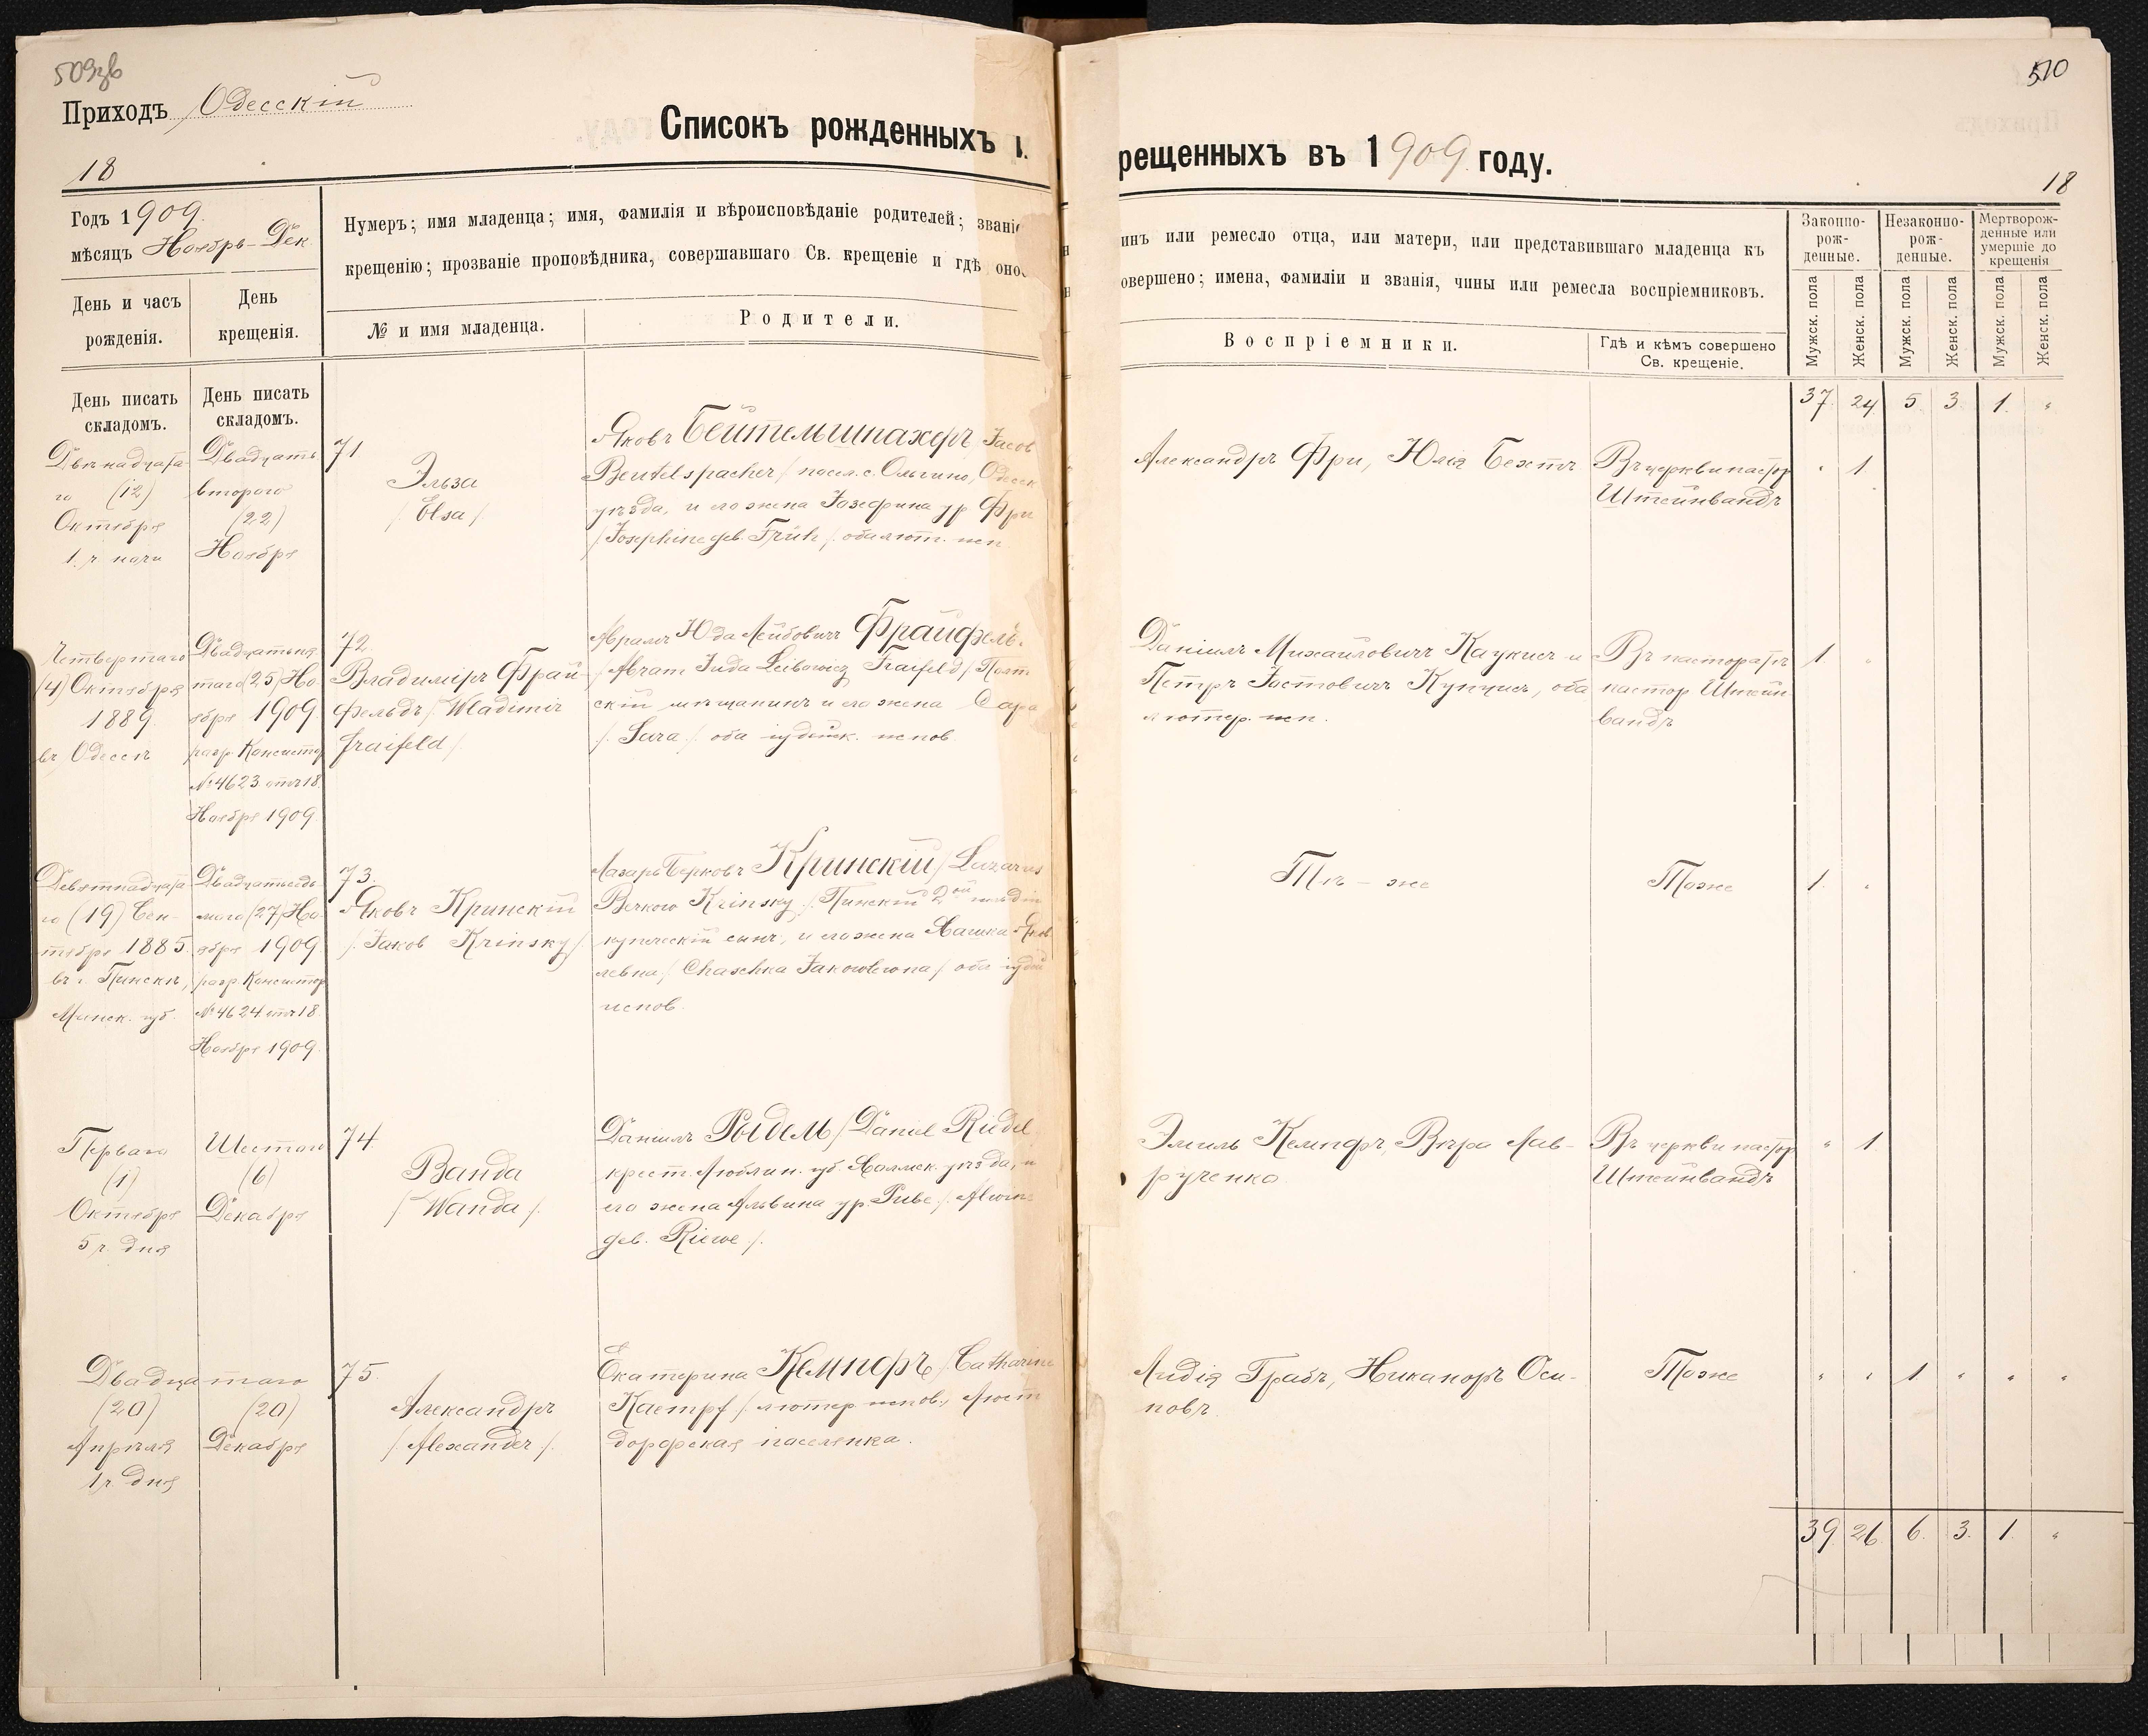 509зв
510
Приходъ Одесскій
Списокъ рожденныхъ и
рещенныхъ въ 1909 году.
18
18
Годъ 1909.
мѣсяцъ Ноябрь-Дек.
Нумеръ; имя младенца; имя, фамилія и вѣроисповѣданіе родителей; званіе
крещенію; прозваніе проповѣдника, совершавшаго Св. крещеніе и гдѣ оно
инъ или ремесло отца, или матери, или представившаго младенца къ
овершено; имена, фамиліи и званія, чины или ремесла воспріемниковъ.
Законно-
рож-
денные.
Незаконно-
рож-
денные.
Мертворож-
денные или
умершіе до
крещенія
День и часъ
рожденія.
День
крещенія.
№ и имя младенца.
Родители.
Воспріемники.
Гдѣ и кѣмъ совершено
Св. крещеніе.
Мужск. пола
Женск. пола
Мужск. пола
Женск. пола
Мужск. пола
Женск. пола
День писать
складомъ.
День писать
складомъ.
37. 24 5. 3. 1. "
Двѣнадцата-
го (12)
Октября
1. ч. ночи
Двадцать
второго
(22)
Ноября
71
Эльза
/. Elsa /.
Яковъ Бейтельшпахеръ /. Jacob
Beutelspacher /. посел. с. Ольгино, Одесск.
уѣзда, и его жена Іозефина ур. Фри
/. Josephine geb. Früh /. оба лют. исп.
Александръ Фри, Юлія Бехтъ
Въ церкви пастор
Штейнвандъ
" 1
Четвертаго
(4) Октября
1889.
въ Одессѣ
Двадцатьпя-
таго (25) Но-
ября 1909.
разр. Консистор.
№ 4623 отъ 18.
Ноября 1909.
72.
Владиміръ Фрай-
фельдъ /. Wladimir
Fraifeld /.
Абрамъ Юда Лейбовичъ Фрайфель
/. Abram Juda Leibowicz Fraifeld /. Полт
скій мѣщанинъ и его жена Сара
/. Sara /. оба іудейск. испов.
Даніилъ Михайловичъ Каукисъ и
Петръ Юстовичъ Купчисъ, оба
лютер. исп.
Въ пасторатѣ
пастор Штейн-
вандъ
1. "
Девятнадцата
го (19) Сен-
тября 1885.
въ г. Пинскѣ,
Минск. губ.
Двадцатьседь-
мого (27) Но-
ября 1909.
разр. Консистор.
№ 4624 отъ 18.
Ноября 1909.
73.
Яковъ Кринскій
/. Jakob Krinsky /.
Лазарь Берковъ Кринскій /. Lazarus
Berkow Krinsky /. Пинскій 2ой гильдіи
купеческій сынъ, и его жена Хашка Яков
левна /. Chaschka Jakowlewna /. оба іудей
испов.
Тѣ - же
Тоже
1. "
Перваго
(1)
Октября
5 ч. дня
Шестого
(6)
Декабря
74.
Ванда
/. Wanda /.
Даніилъ Ридель /. Daniel Riedel,
крест. Люблин. губ. Холмск. уѣзда, и
его жена Альвина ур. Риве /. Alwine
geb. Riewe /.
Эмиль Кемпфъ, Вѣра Лав-
рученко
Въ церкви пастор
Штейнвандъ
" 1.
Двадцатаго
(20)
Апрѣля
1 ч. дня
(20)
Декабря
75.
Александръ
/. Alexander /.
Екатерина Кемпфъ /. Catharine
Kaempf /. лютер. испов., Люст
дорфская поселянка.
Лидія Грабъ, Никаноръ Оси-
повъ
Тоже
" " 1 " " "
39 26. 6. 3. 1. "